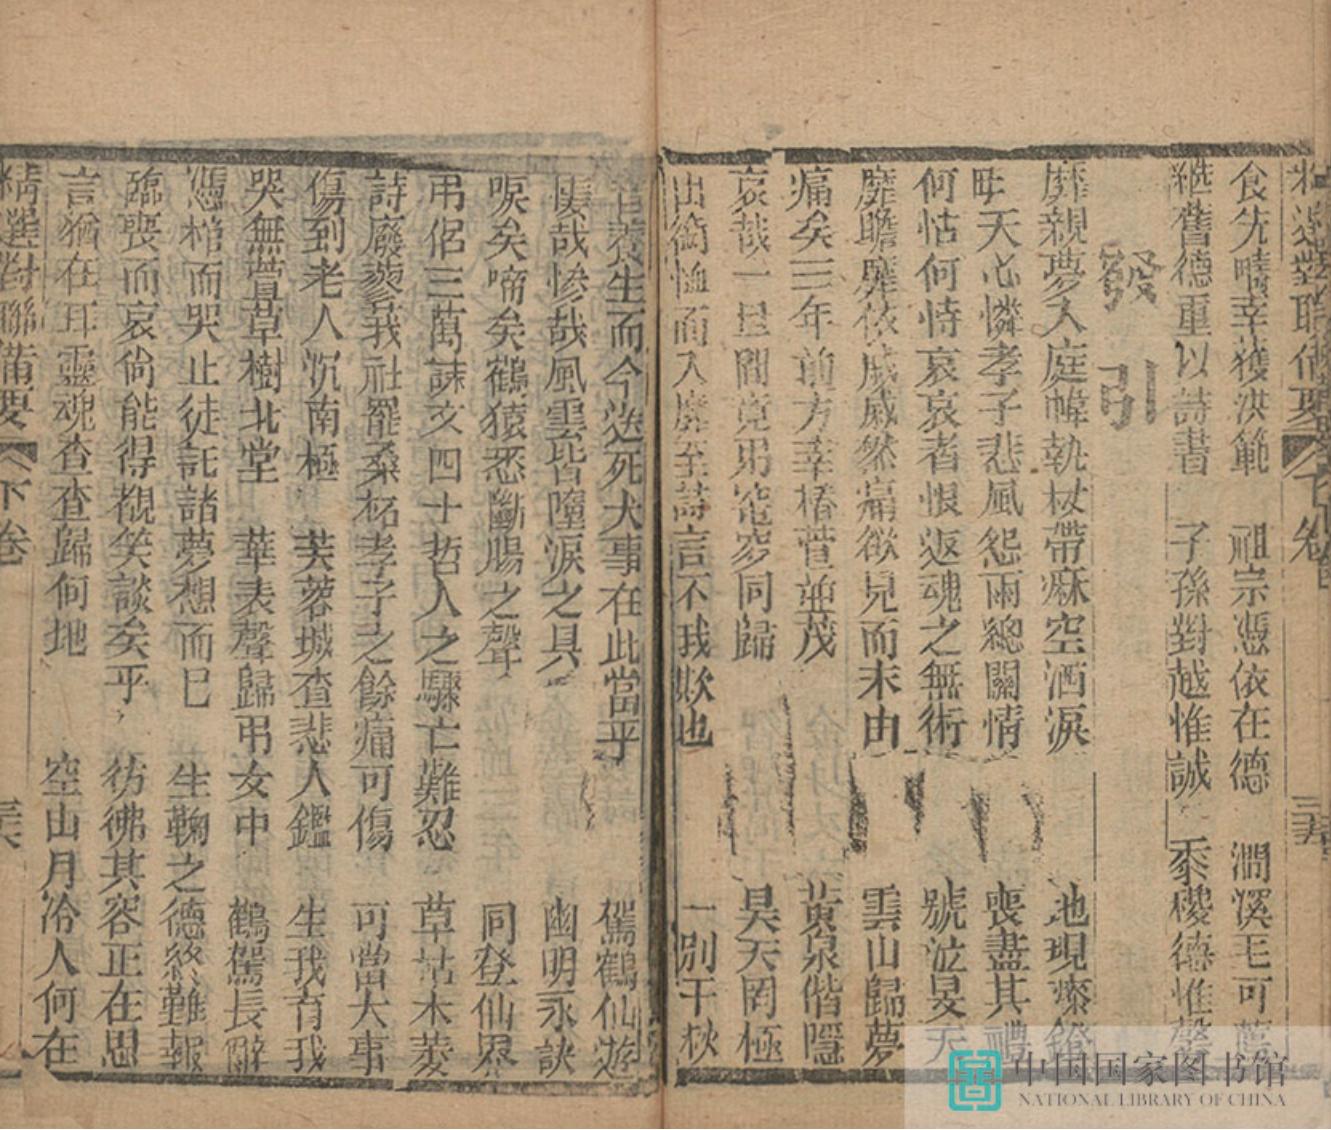 精選對聯備要 下卷 三五
食先疇幸獲洪範 祖宗憑依在德 澗溪毛可薦
繼舊德重以詩書 子孫對越惟誠 黍稷德惟馨
發引
靡親夢入庭幃執杖帶麻空洒淚 池現
昨天心憐孝子悲風怨雨總關情 喪盡其禮
何怙何恃哀哀者恨返魂之無術 號泣旻天
靡瞻靡依戚戚然痛欲見而未由 雲山歸夢
痛矣三年前方幸椿萱並茂 黃泉偕隱
哀哉一旦間竟男窀穸同歸 昊天罔極
出銜恤而入靡至詩言不我欺也 一別千秋
養生而今送死大事在此當乎 駕鶴仙遊
哉慘哉風雲皆墮淚之具 幽明永訣
唳矣啼矣鶴猿恐斷腸之聲 同登仙界
弔侶三萬誅亥四十哲人之驟亡難忍 草枯木萎
詩廢蓼莪社罷桑柘孝子之餘痛可傷 可當大事
傷到老人沉南極 芙蓉城杳悲人鑑 生我育我
哭無萱草樹北堂 華表聲歸弔女中 鶴駕長辭
憑棺而哭止徒託諸夢想而巳 生鞠之德終難報
臨喪而哀尚能得覩笑談矣乎 彷彿其容正在思
言猶在耳靈魂杳杳歸何地 空山月冷人何在
精選對聯備要 下卷 三六
中国国家图书馆
NATIONAL LIBRARY OF CHINA